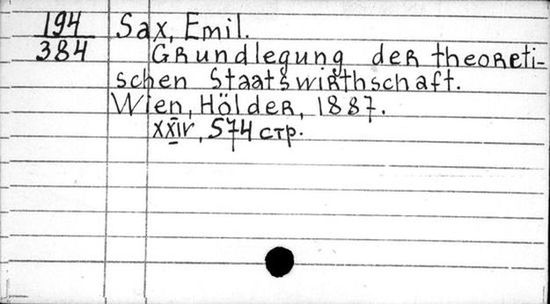 194 Sax, Emil.
384 Grundlegung der theoreti-
schen Staatswirthschaft.
Wien, Hölder, 1887.
XXIV, 574 стр.